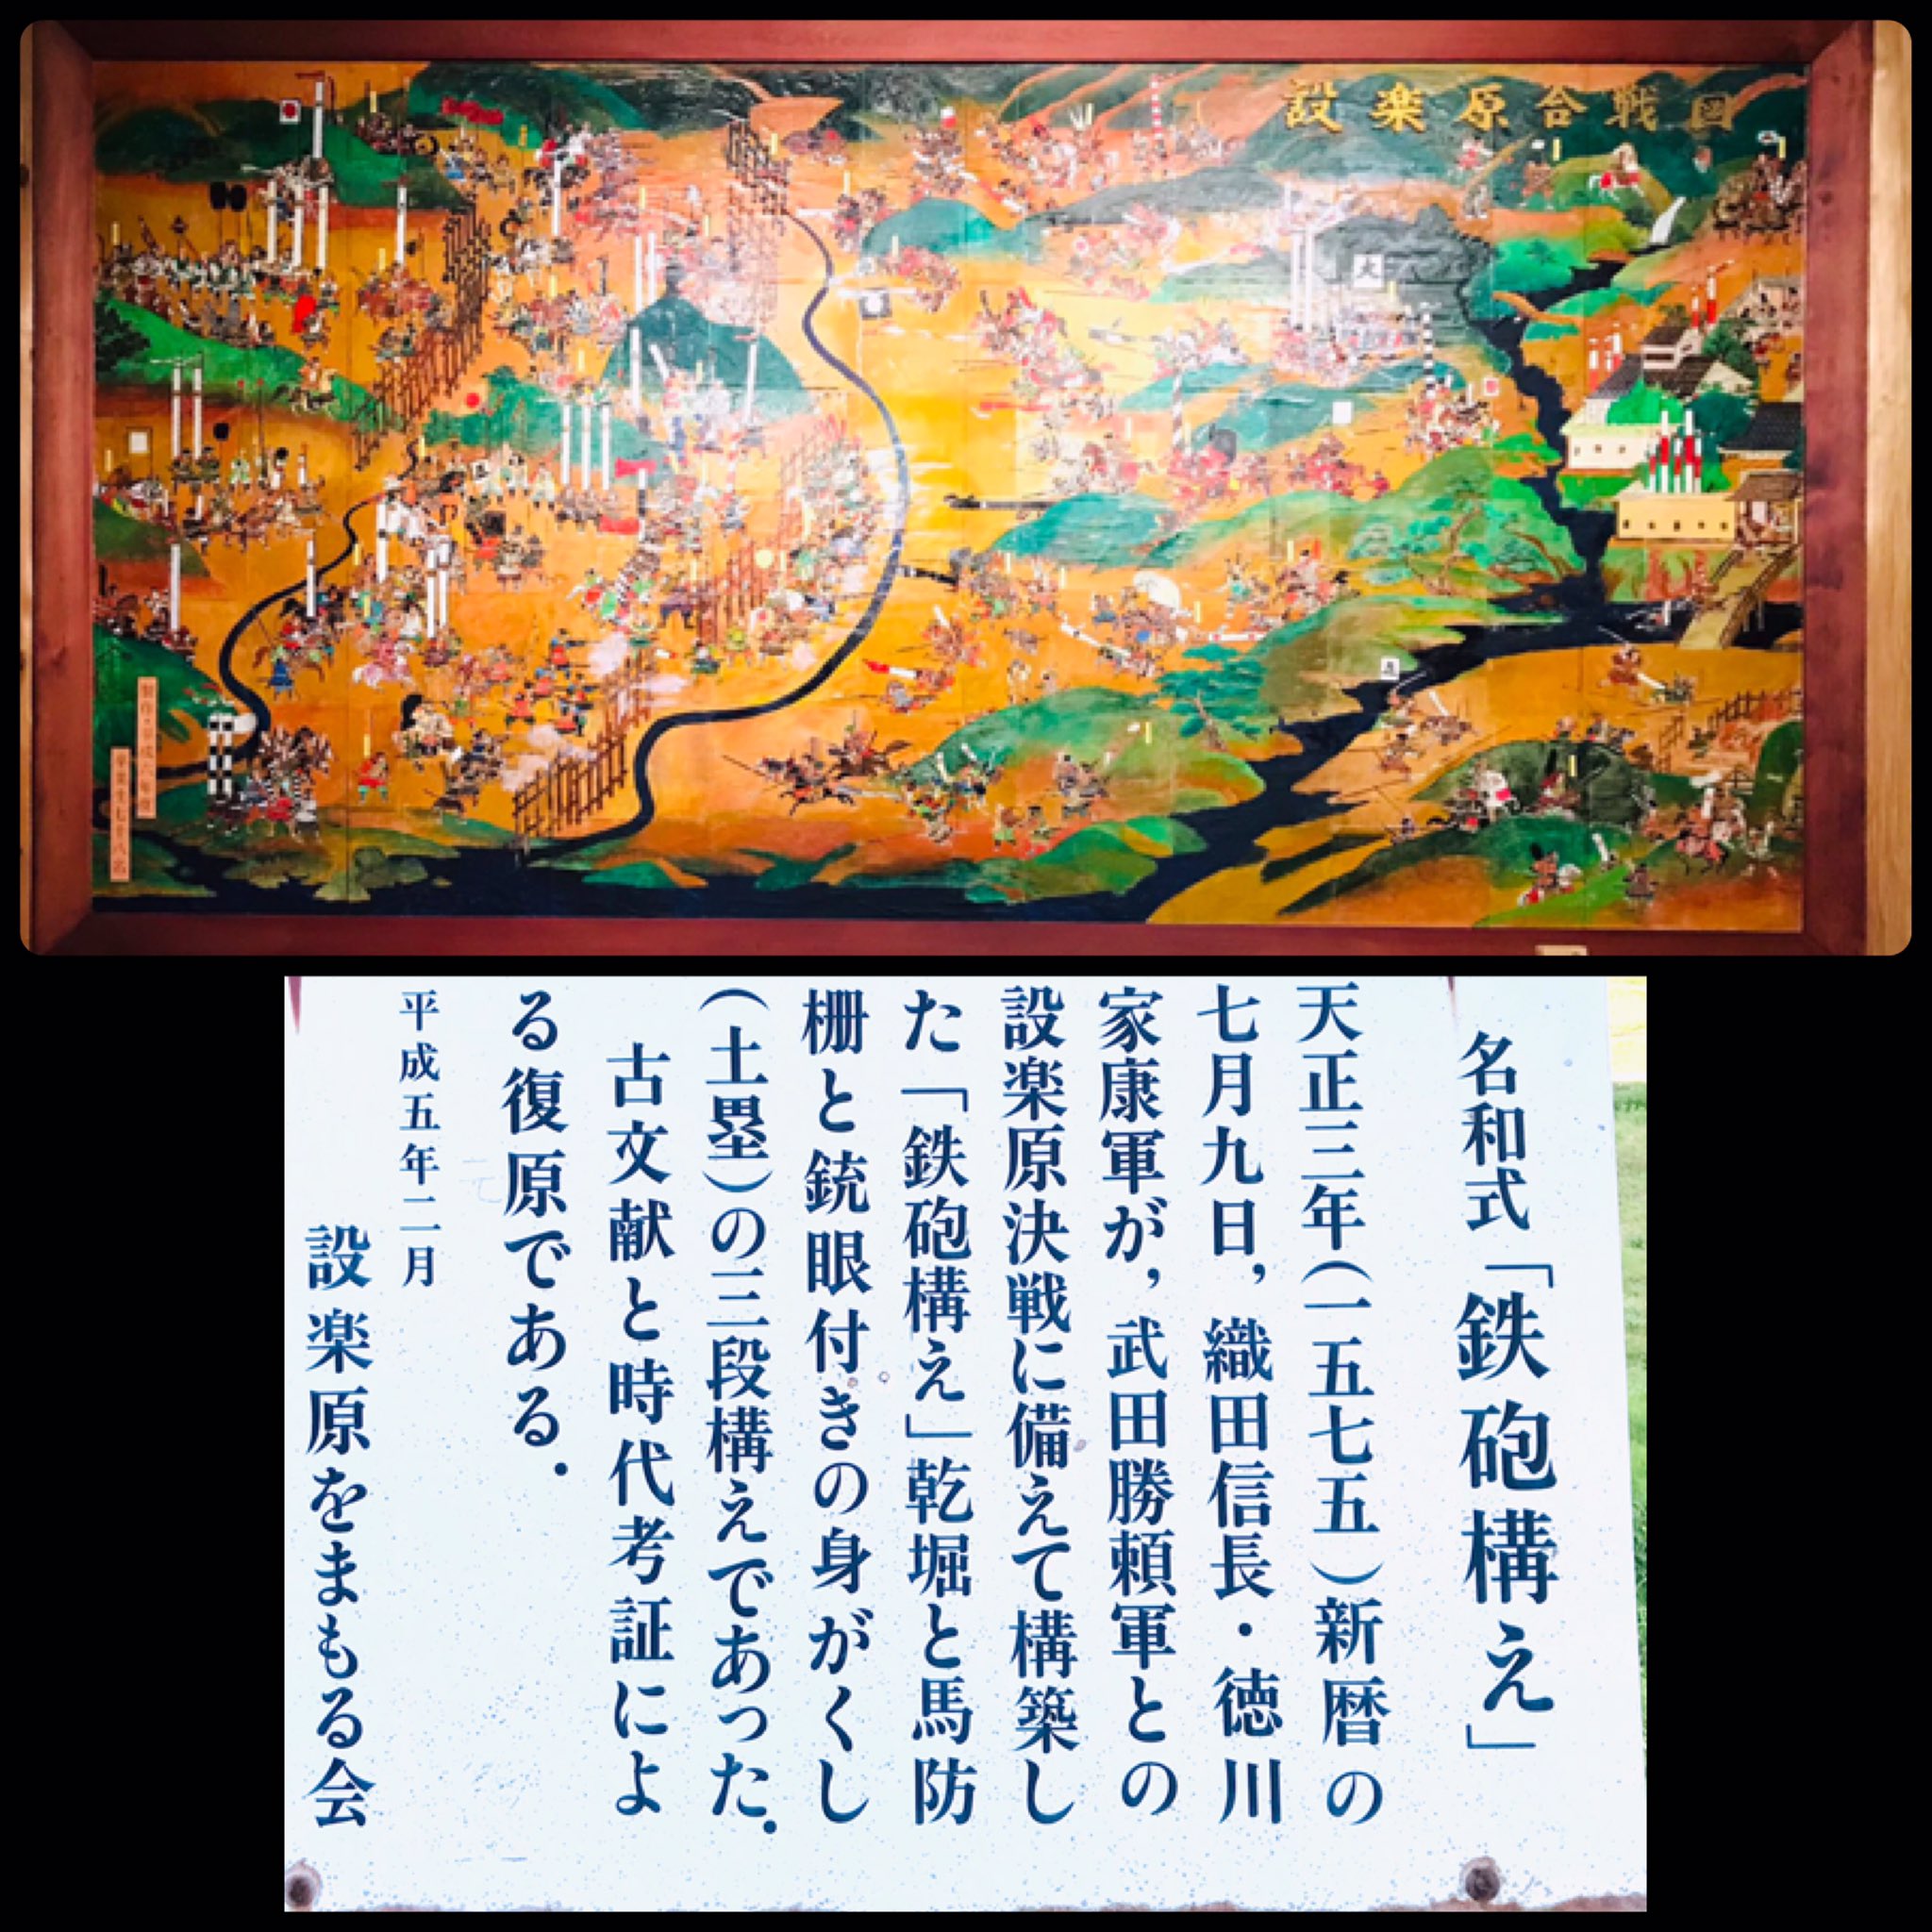 設楽原合戦図
名和式「鉄砲構え」
天正三年(一五七五)新暦の
七月九日,織田信長・徳川
家康軍が,武田勝頼軍との
設楽原決戦に備えて構築し
た「鉄砲構え」乾堀と馬防
柵と銃眼付きの身がくし
(土塁)の三段構えであった.
古文献と時代考証によ
る復原である.
平成五年二月
設楽原をまもる会